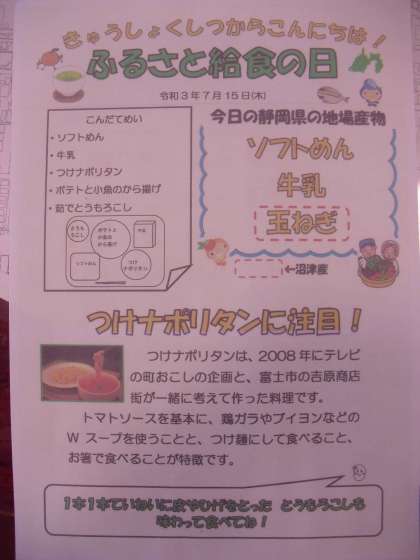 きゅうしょくしつからこんにちは！
ふるさと給食の日
令和3年7月15日(木)
こんだてめい
・ソフトめん
・牛乳
・つけナポリタン
・ポテトと小魚のから揚げ
・茹でとうもろこし
とうもろこし
ポテトと小魚のから揚げ
牛乳
ソフトめん
つけナポリタン
今日の静岡県の地場産物
ソフトめん
牛乳
玉ねぎ
←沼津産
つけナポリタンに注目！
つけナポリタンは、2008年にテレビ
の町おこしの企画と、富士市の吉原商店
街が一緒に考えて作った料理です。
トマトソースを基本に、鶏ガラやブイヨンなどの
Wスープを使うことと、つけ麺にして食べること、
お箸で食べることが特徴です。
1本1本ていねいに皮やひげをとった とうもろこしも
味わって食べてね！